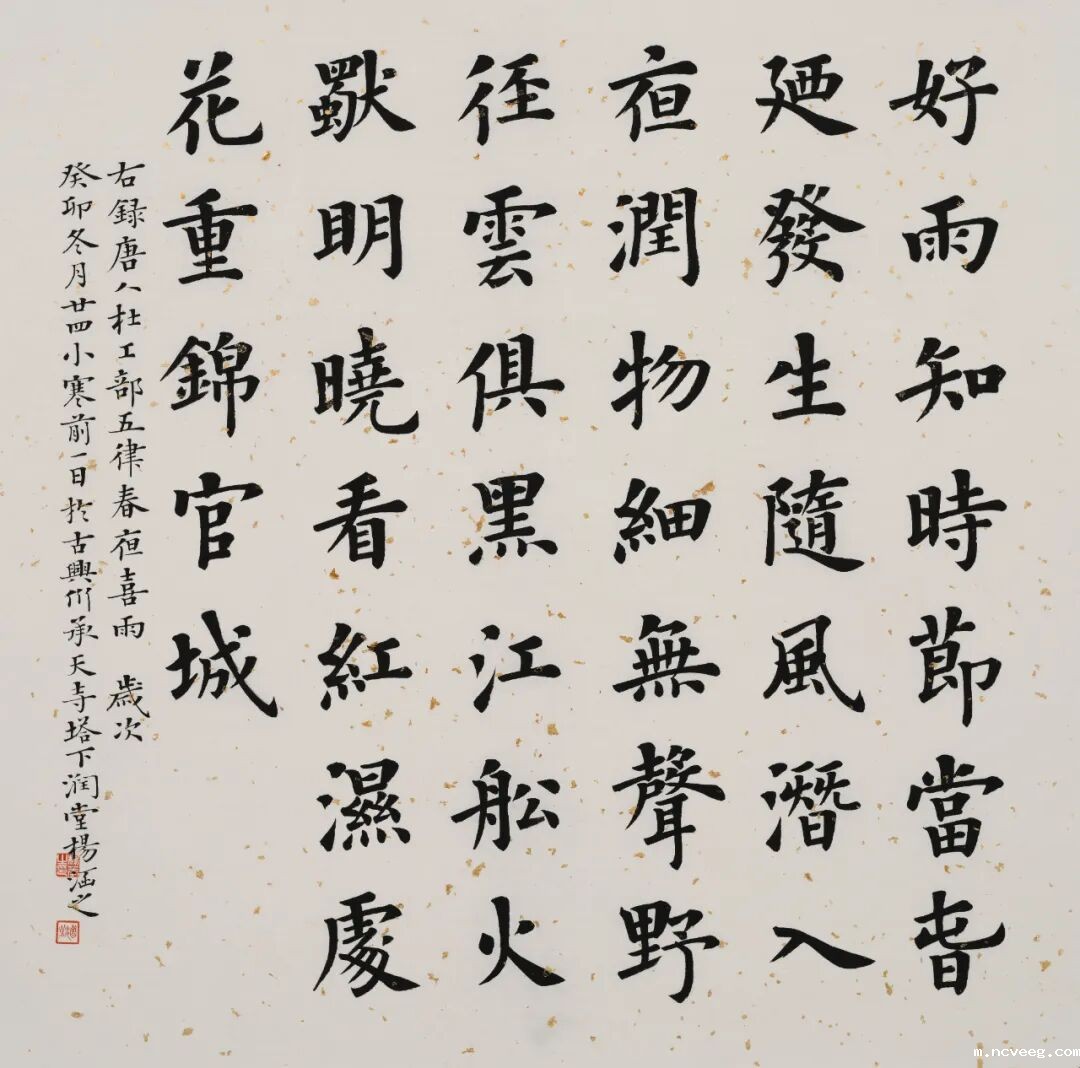 好雨知時節當旾
廼發生隨風潛入
亱潤物細無聲野
徑雲俱黑江船火
獸明曉看紅濕處
花重錦官城
右録唐人杜工部五律春亱喜雨 歲次
癸卯冬月廿四小寒前一日於古興州承天寺塔下润堂楊涵之
m.ncveeg.com